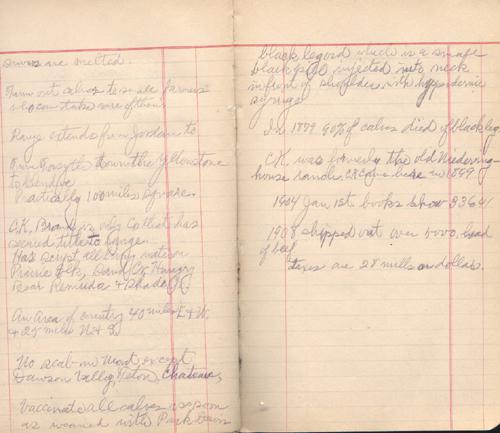 snows are melted.
Turn out calves to small farmers
who can take care of them.
Range extends from Jordan to
from Forsyth down the Yellowstone
to Glendive
Practically 100 miles square.
C.K. Brand is only Co. that has
secured title to range.
Has script, all along water on
Prairie Elk, Sand Ck, Hungry
Bear Remuda &
An Area of country 40 miles E & W.
& 25 miles N. & S.
No scab in Mont. except
Dawson Valley, Teton, Chateau,
Vaccinate all calves as soon
as weaned with
black legoid which is a small
black pill injected into neck
in front of shoulder with hypodermic
syringe
In 1899 90% of calves died of blackleg
C.K. was formerly the old Niedring-
house ranch. C.K. came here in 1899
1904 Jan 1st. books show 33641
1908 shipped out over 5000. head
of beef
taxes are 28 mills on dollar.